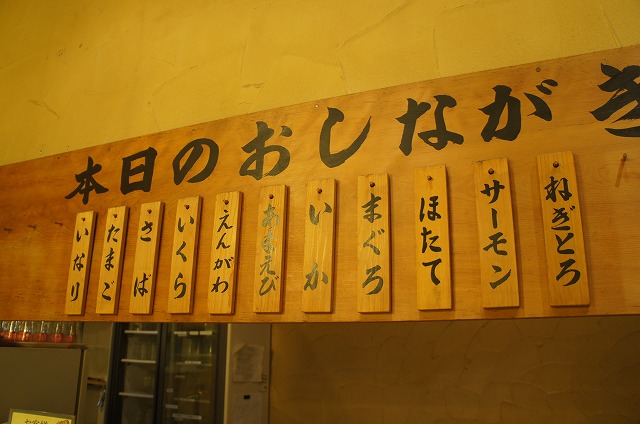 本日のおしながき
いなり
たまご
さば
いくら
えんがわ
あまえび
いか
まぐろ
ほたて
サーモン
ねぎとろ